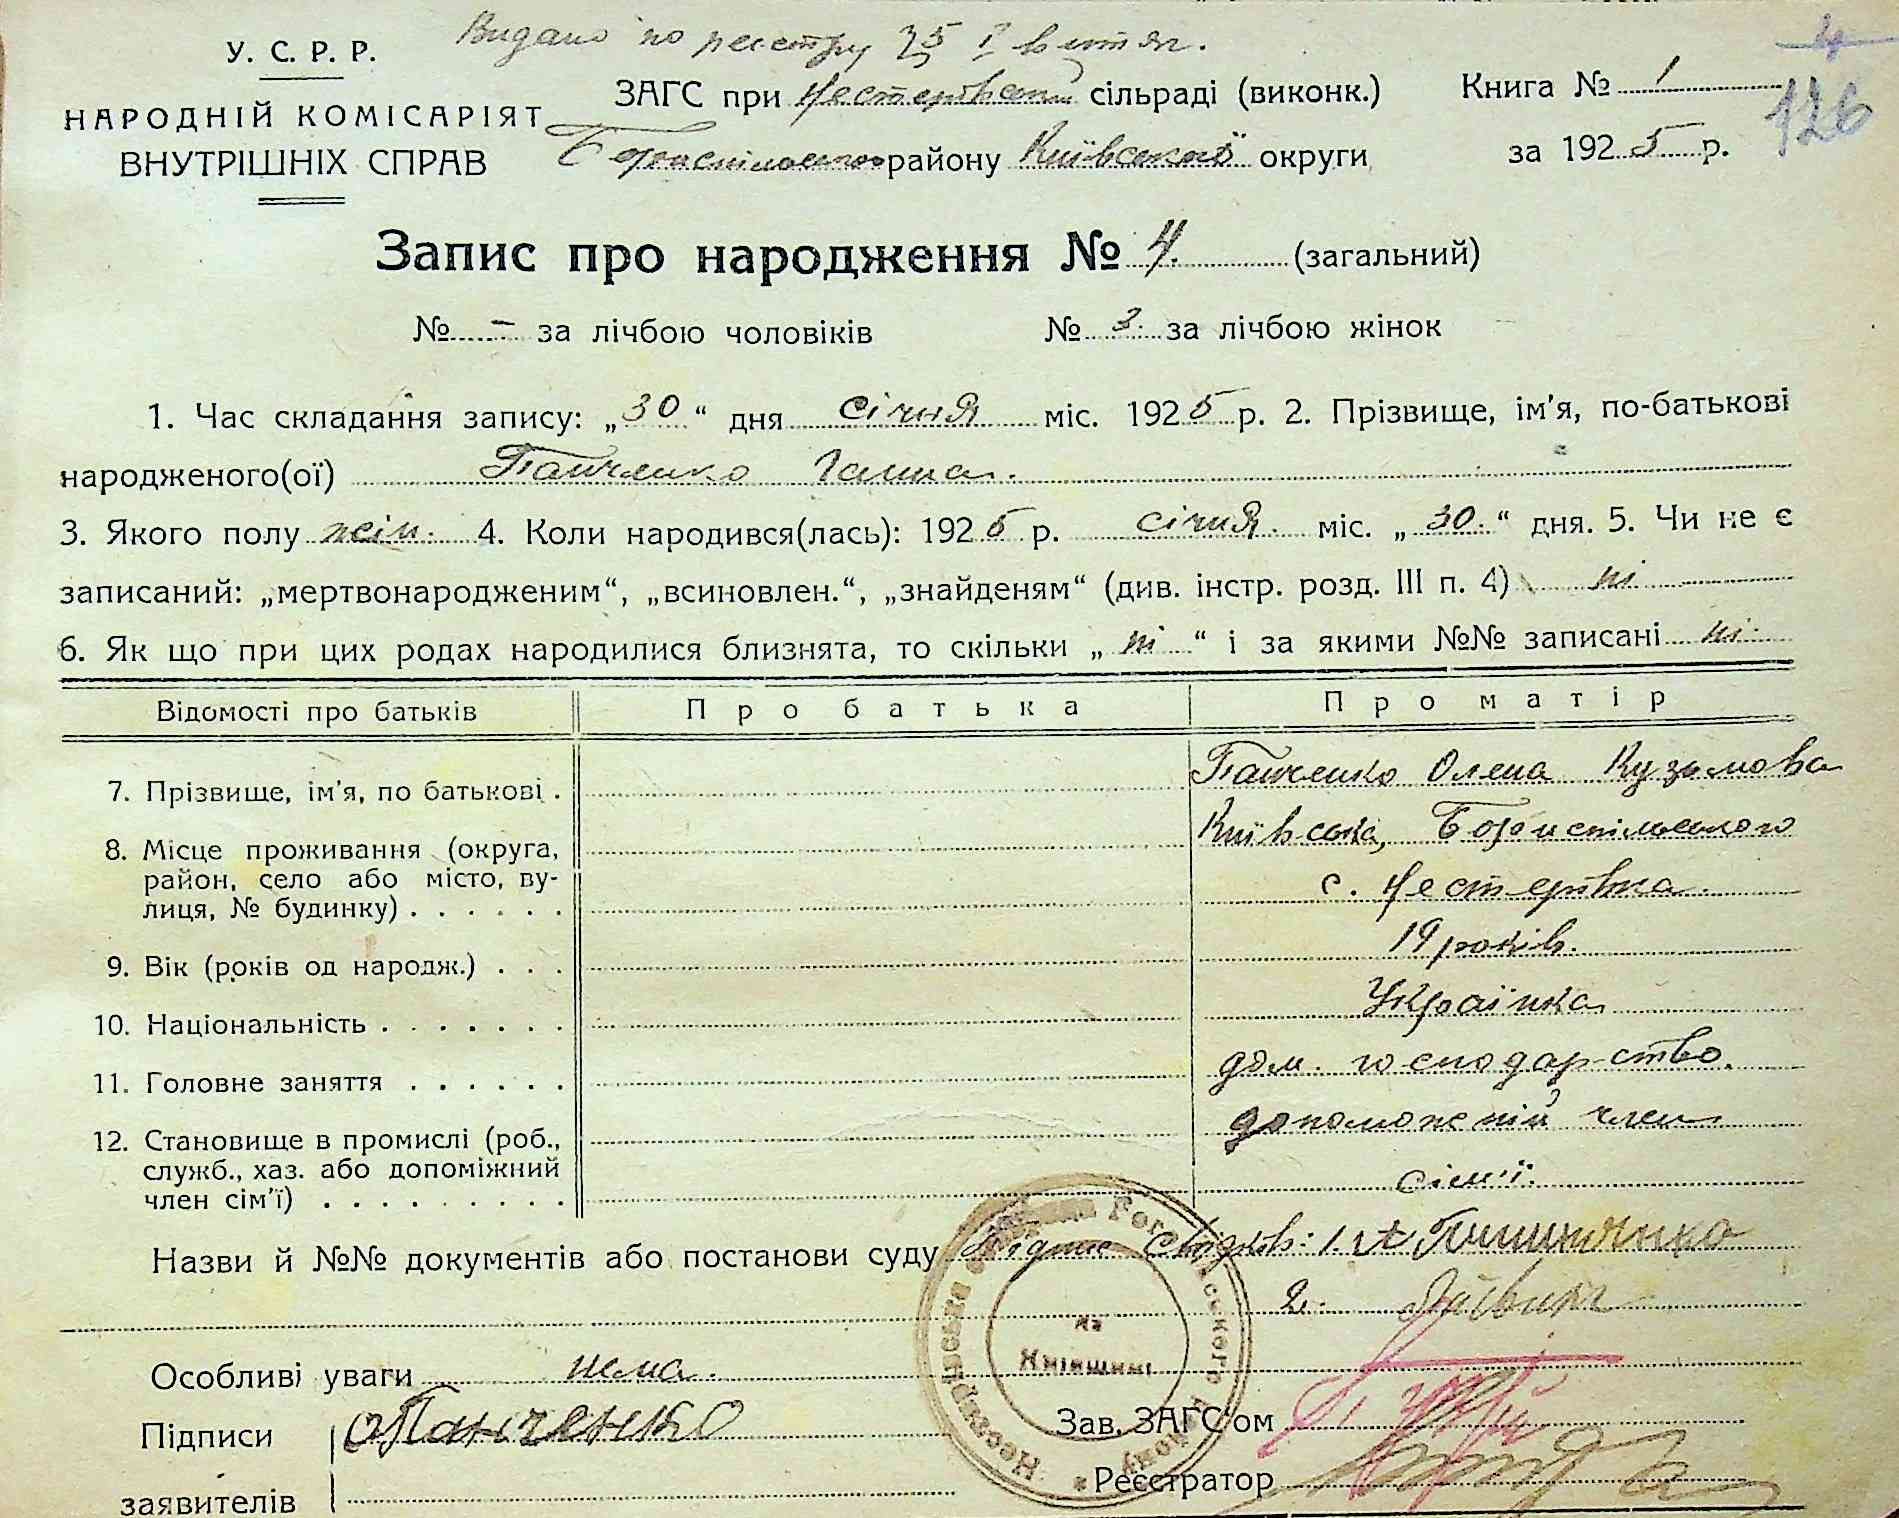 Видано по реєстру 25 І витяг.
У. С. Р. Р.
НАРОДНІЙ КОМІСАРІЯТ
ВНУТРІШНІХ СПРАВ
ЗАГС при Нестерівській сільраді (виконк.)
Бориспільського району Київської округи
Книга № 1
за 1925 р.
4
126
Запис про народження № 4. (загальний)
№ – за лічбою чоловіків № 3. за лічбою жінок
1. Час складання запису: „30“ дня січня міс. 1925 р. 2. Прізвище, ім'я, по-батькові
народженого(ої) Панченко Ганна.
3. Якого полу жін. 4. Коли народився(лась): 1925 р. січня. міс. „30.“ дня. 5. Чи не є
записаний: „мертвонародженим“, „всиновлен.“, „знайденям“ (див. інстр. розд. III п. 4) ні
6. Як що при цих родах народилися близнята, то скільки „ні“ і за якими №№ записані ні.
Відомості про батьків Про батька Про матір
7. Прізвище, ім'я, по батькові . Панченко Олена Кузьмова
8. Місце проживання (округа, Київська, Бориспільського
район, село або місто, ву-
лиця, № будинку) . . . . . . с. Нестерівка.
9. Вік (років од народж.) . . . 19 років.
10. Національність . . . . . . . Українка
11. Головне заняття . . . . . . дом. господарство.
12. Становище в промислі (роб., допоможній член
служб., хаз. або допоміжний
член сім'ї) . . . . . . . . . сім'ї.
Назви й №№ документів або постанови суду Підпис свідків: 1. А
2.
Особливі уваги нема.
Підписи О Панченко
заявителів
Зав. ЗАГС'ом
Реєстратор
на
Київщині